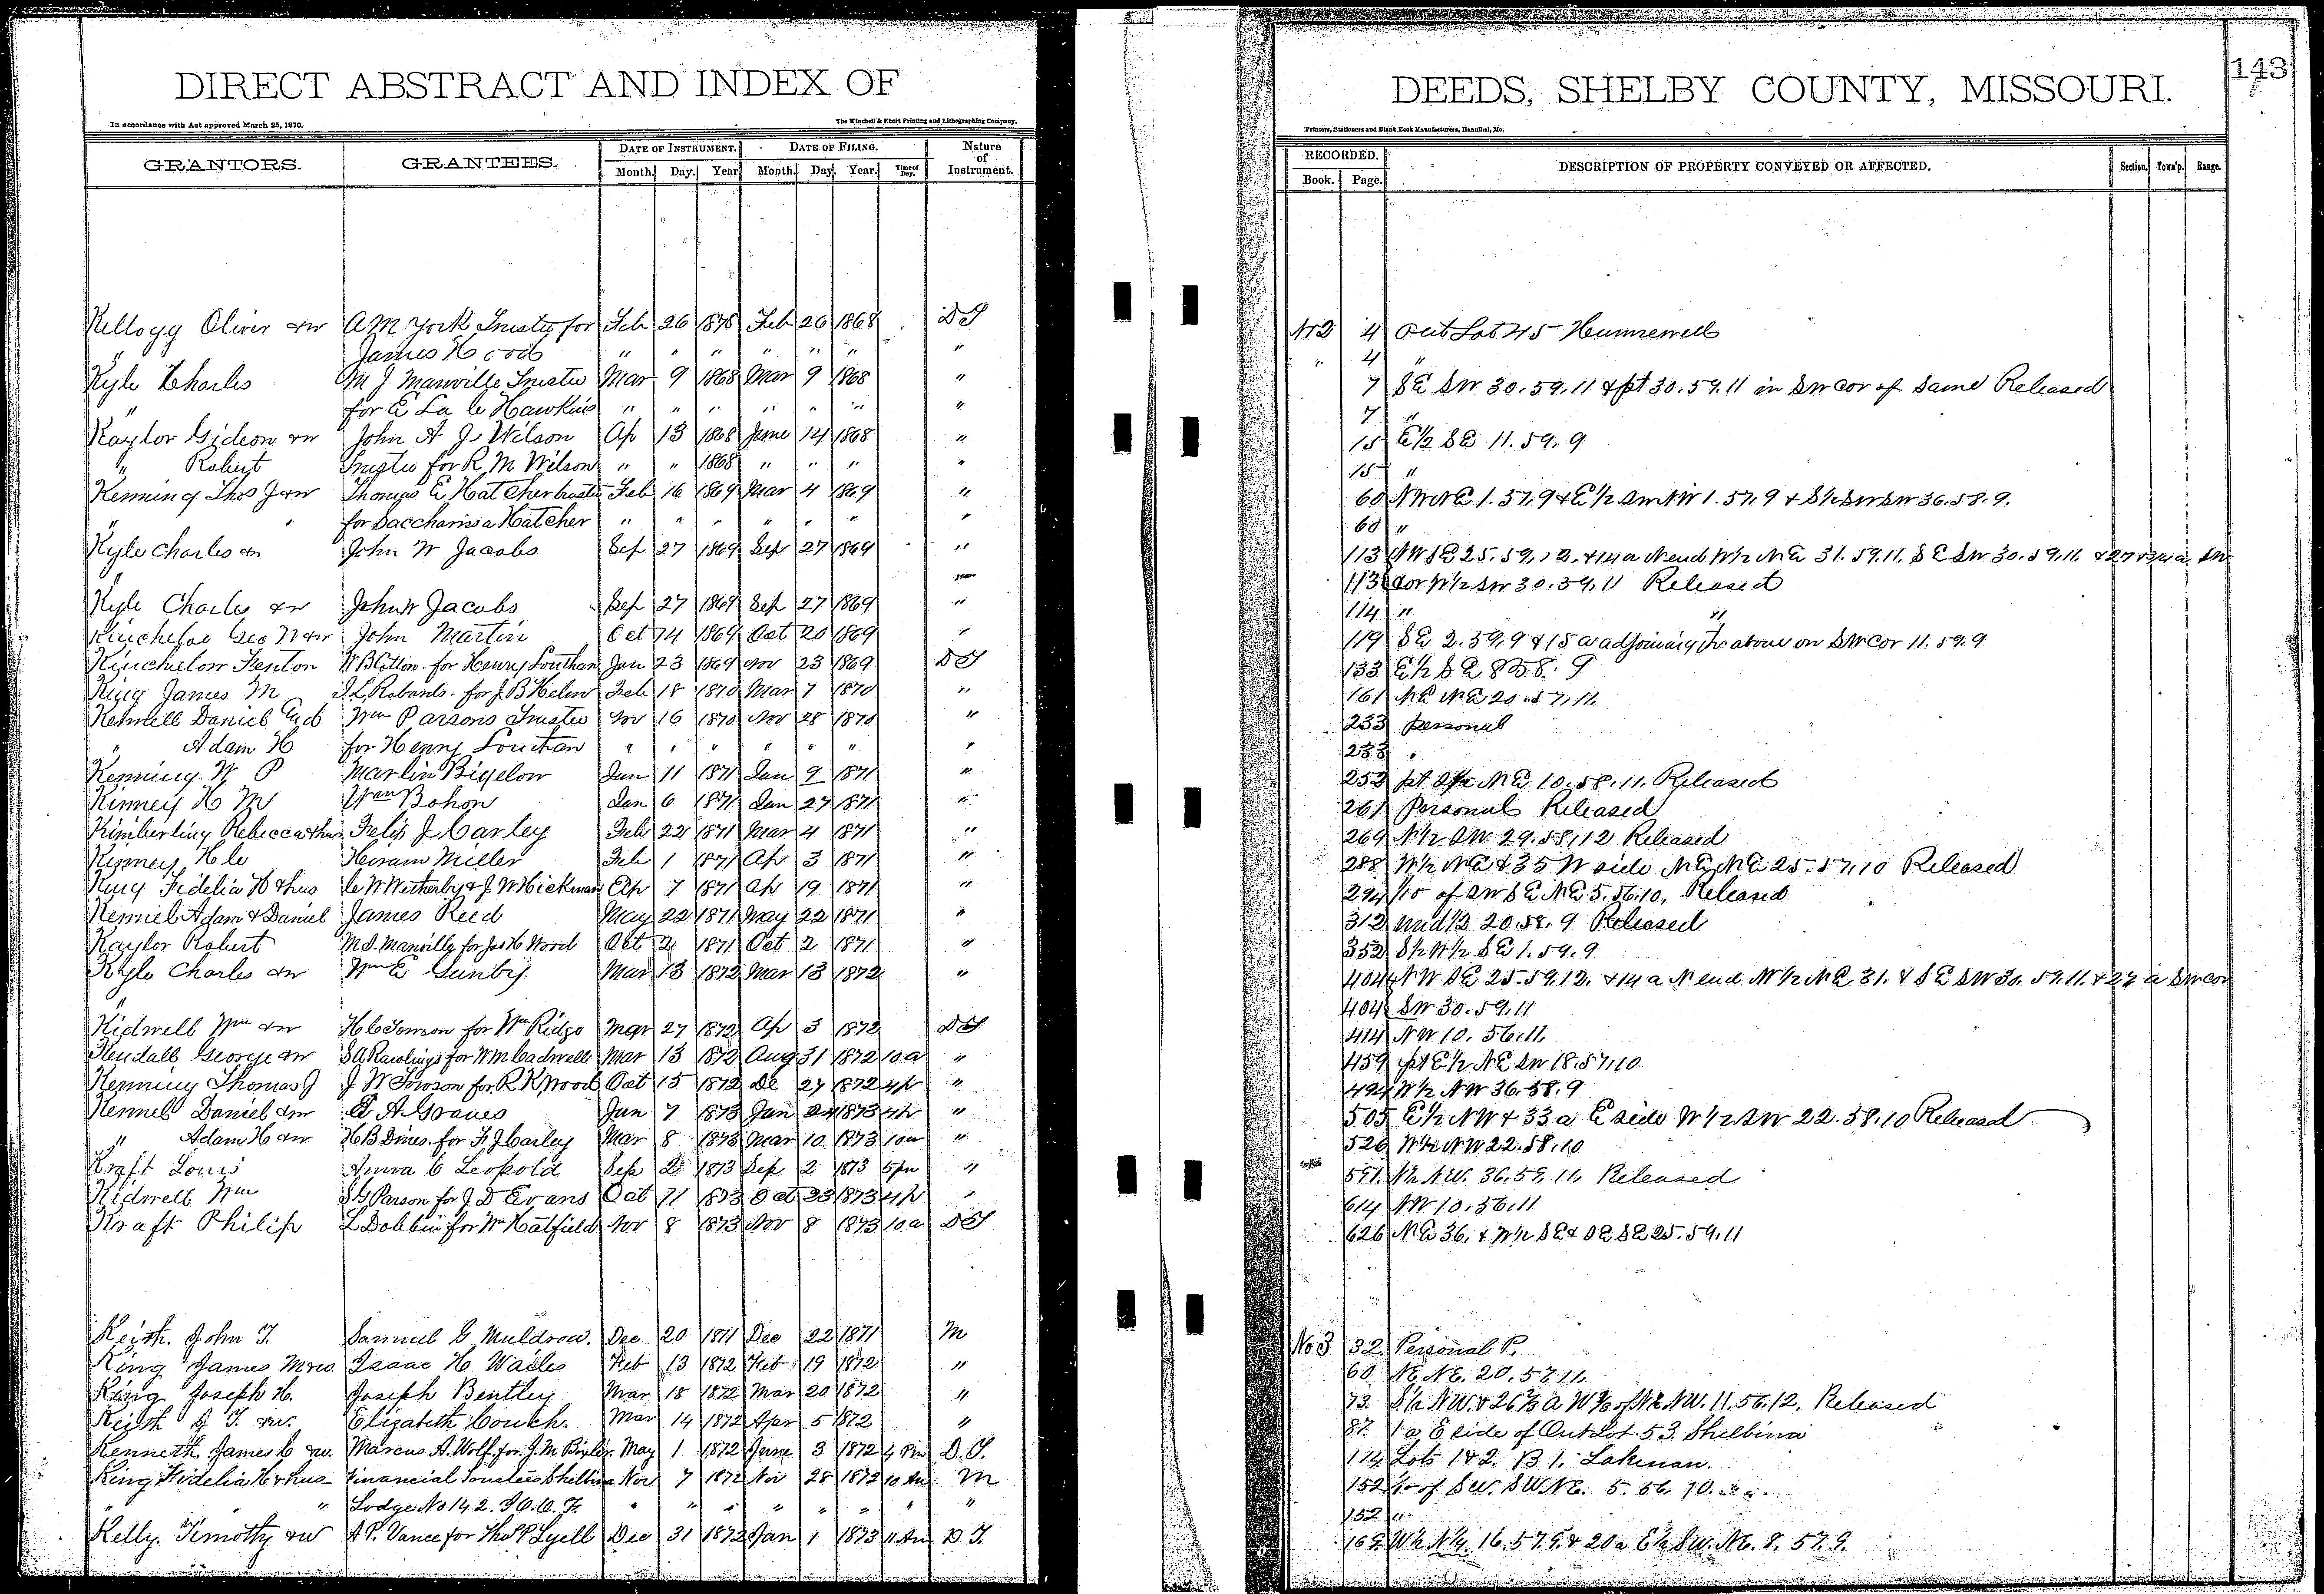 DIRECT ABSTRACT AND INDEX OF
In accordance with Act approved March 25, 1870.
The Winchell & Ebert Printing and Lithographing Company,
GRANTORS. GRANTEES. DATE OF INSTRUMENT. DATE OF FILING. Nature of Instrument.
Month. Day. Year Month. Day. Year. Time of Day.
Kellogg Oliver &w A M York Trustee for Feb 26 1878 Feb 26 1868 DT
" James H " " " " " " "
Kyle Charles M J Manville Trustee Mar 9 1868 Mar 9 1868 "
" for E La C Hawkins " " " " " " "
Kaylor Gideon &w John A J Wilson Ap 13 1868 June 14 1868 "
" Robert Trustee for R M Wilson " " 1868 " " " "
Kenning Thos J &w Thomas E Hatcher trustee Feb 16 1869 Mar 4 1869 "
" " for Saccharissa Hatcher " " " " " " "
Kyle Charles &w John W Jacobs Sep 27 1869 Sep 27 1869 "
"
Kyle Charles &w John W Jacobs Sep 27 1869 Sep 27 1869 "
Kincheloe Geo W &w John Martin Oct 14 1869 Oct 20 1869 "
Kincheloe Fenton W B Cotton for Henry Louthan Jan 23 1869 Nov 23 1869 DT
King James M J L Robards for J B Helm Feb 18 1870 Mar 7 1870 "
Kennell Daniel Wm Parsons Trustee Nov 16 1870 Nov 28 1870 "
" Adam H for Henry Louthan " " " " " " "
Kenning W P Martin Bigelow Jan 11 1871 Jan 9 1871 "
Kinney H M Wm Bohon Jan 6 1871 Jan 27 1871 "
Kimberling Rebecca &hus Felix J Carley Feb 22 1871 Mar 4 1871 "
Kinney H C Hiram Miller Feb 1 1871 Ap 3 1871 "
King Fidelia H &hus C W Wetherby & J W Hickman Ap 7 1871 Ap 19 1871 "
Kennel Adam & Daniel James Reed May 22 1871 May 22 1871 "
Kaylor Robert M J Manville for Jas H Wood Oct 2 1871 Oct 2 1871 "
Kyle Charles &w Wm E Gunby Mar 13 1872 Mar 13 1872 "
"
Kidwell Wm &w H C Towson for Wm Ridge Mar 27 1872 Ap 3 1872 DT
Kendall George &w S A Rawlings for W M Cadwell Mar 13 1872 Aug 31 1872 10 a "
Kenning Thomas J J W Towson for R K Wood Oct 15 1872 De 27 1872 4 p "
Kennel Daniel &w E A Graves Jan 7 1873 Jan 24 1873 4 p "
" Adam H &w H B Dines for F J Carley Mar 8 1873 Mar 10 1873 10 a "
Kraft Louis Anna C Leopold Sep 2 1873 Sep 2 1873 5 pm "
Kidwell Wm S G Parson for J D Evans Oct 11 1873 Oct 23 1873 4 p "
Kraft Philip L Dobbin for Wm Hatfield Nov 8 1873 Nov 8 1873 10 a DT
Keith. John T. Samuel G Muldrow. Dec 20 1871 Dec 22 1871 M
King James M &w Isaac H Wailes Feb 13 1872 Feb 19 1872 "
King Joseph H. Joseph Bentley Mar 18 1872 Mar 20 1872 "
Keith J. T. &w. Elizabeth Couch. Mar 14 1872 Apr 5 1872 "
Kenneth. James C &w. Marcus A. Wolf. for J. M. Bixler May 1 1872 June 3 1872 4 Pm D. T.
King Fidelia H &hus Financial Trustees Shelbina Nov 7 1872 Nov 28 1872 10 Am M
" " Lodge No 142. I. O. O. F. " " " " " " " "
Kelly. Timothy &w A P. Vance for Thos P Lyell Dec 31 1872 Jan 1 1873 11 Am D T.
DEEDS, SHELBY COUNTY, MISSOURI.
143
Printers, Stationers and Blank Book Manufacturers, Hannibal, Mo.
RECORDED. DESCRIPTION OF PROPERTY CONVEYED OR AFFECTED. Section. Town'p. Range.
Book. Page.
No 2 4 Out Lot 45 Hunnewell
" 4 "
7 SE SW 30. 59. 11 & pt 30. 59. 11 in SW cor of Same Released
7 "
15 E½ SE 11. 59. 9
15 "
60 NW NE 1. 57. 9 & E½ SW NW 1. 57. 9 & S½ SW SW 36. 58. 9.
60 "
113 NW SE 25. 59. 12. & 14 a N end W½ NE 31. 59. 11. SE SW 30. 59. 11. & 27 a SW
113 cor W½ SW 30. 59. 11 Released
114 " "
119 SE 2. 59. 9 & 15 a adjoining the above on SW cor 11. 59. 9
133 E½ SE 8 58. 9
161 NE NE 20. 57. 11.
233 Personal
233 "
252 pt NE 10. 58. 11. Released
261 Personal Released
269 N½ SW 29. 58. 12 Released
288 W½ NE & 35 W side NE NE 25. 57. 10 Released
294 1/10 of SW SE NE 5. 56. 10, Released
312 und ½ 20. 58. 9 Released
352 S½ W½ SE 1. 59. 9
404 NW SE 25. 59. 12. & 14 a N end W½ NE 31. & SE SW 30. 59. 11. & 27 a SW cor
404 SW 30. 59. 11
414 NW 10. 56. 11.
459 pt E½ NE SW 18. 57. 10
494 W½ NW 36. 58. 9
505 E½ NW & 33 a E side W½ SW 22. 58. 10 Released
526 W½ NW 22. 58. 10
591. N½ NW. 36. 59. 11. Released
614 NW 10. 56. 11
626 NE 36. & W½ SE & SE SE 25. 59. 11
No 3 32. Personal P.
60 NE NE. 20. 57. 11.
73. S½ NW. & 26⅔ a W ⅔ of N½ NW. 11. 56. 12. Released
87. 1 a E side of Out Lot 53. Shelbina
114 Lots 1 & 2. B 1. Lakenan.
152 of SW. SW NE. 5. 56. 10.
152 "
169. W½ 16. 57. 9. & 20 a E½ SW. NE. 8. 57. 9.